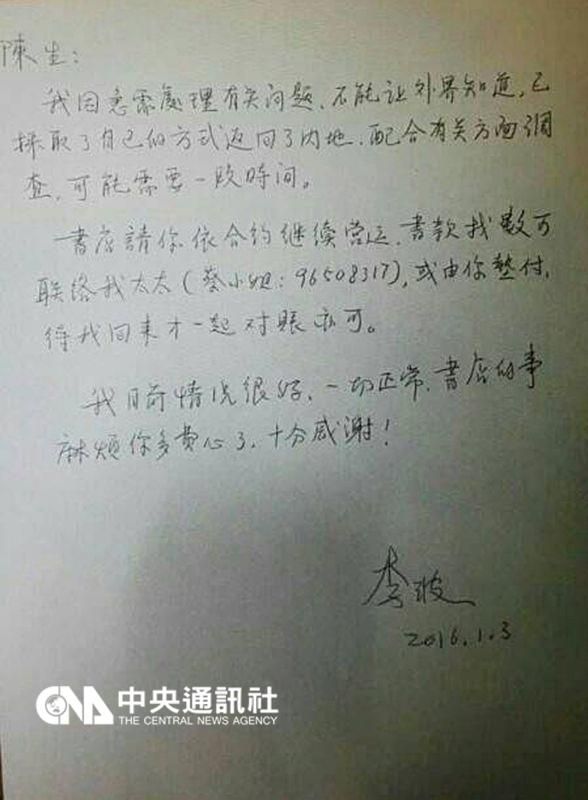 陳生：
我因急需處理有关问题，不能让外界知道，已
採取了自己的方式返回了内地，配合有关方面調
查，可能需要一段時间。
書店請你依合約继续营运，書款找數可
联络我太太（蔡小姐：96508317），或由你墊付，
待我回来才一起对賬亦可。
我目前情况很好，一切正常，書店的事
麻烦你多费心了，十分感谢！
李波
2016.1.3
CNA 中央通訊社
THE CENTRAL NEWS AGENCY